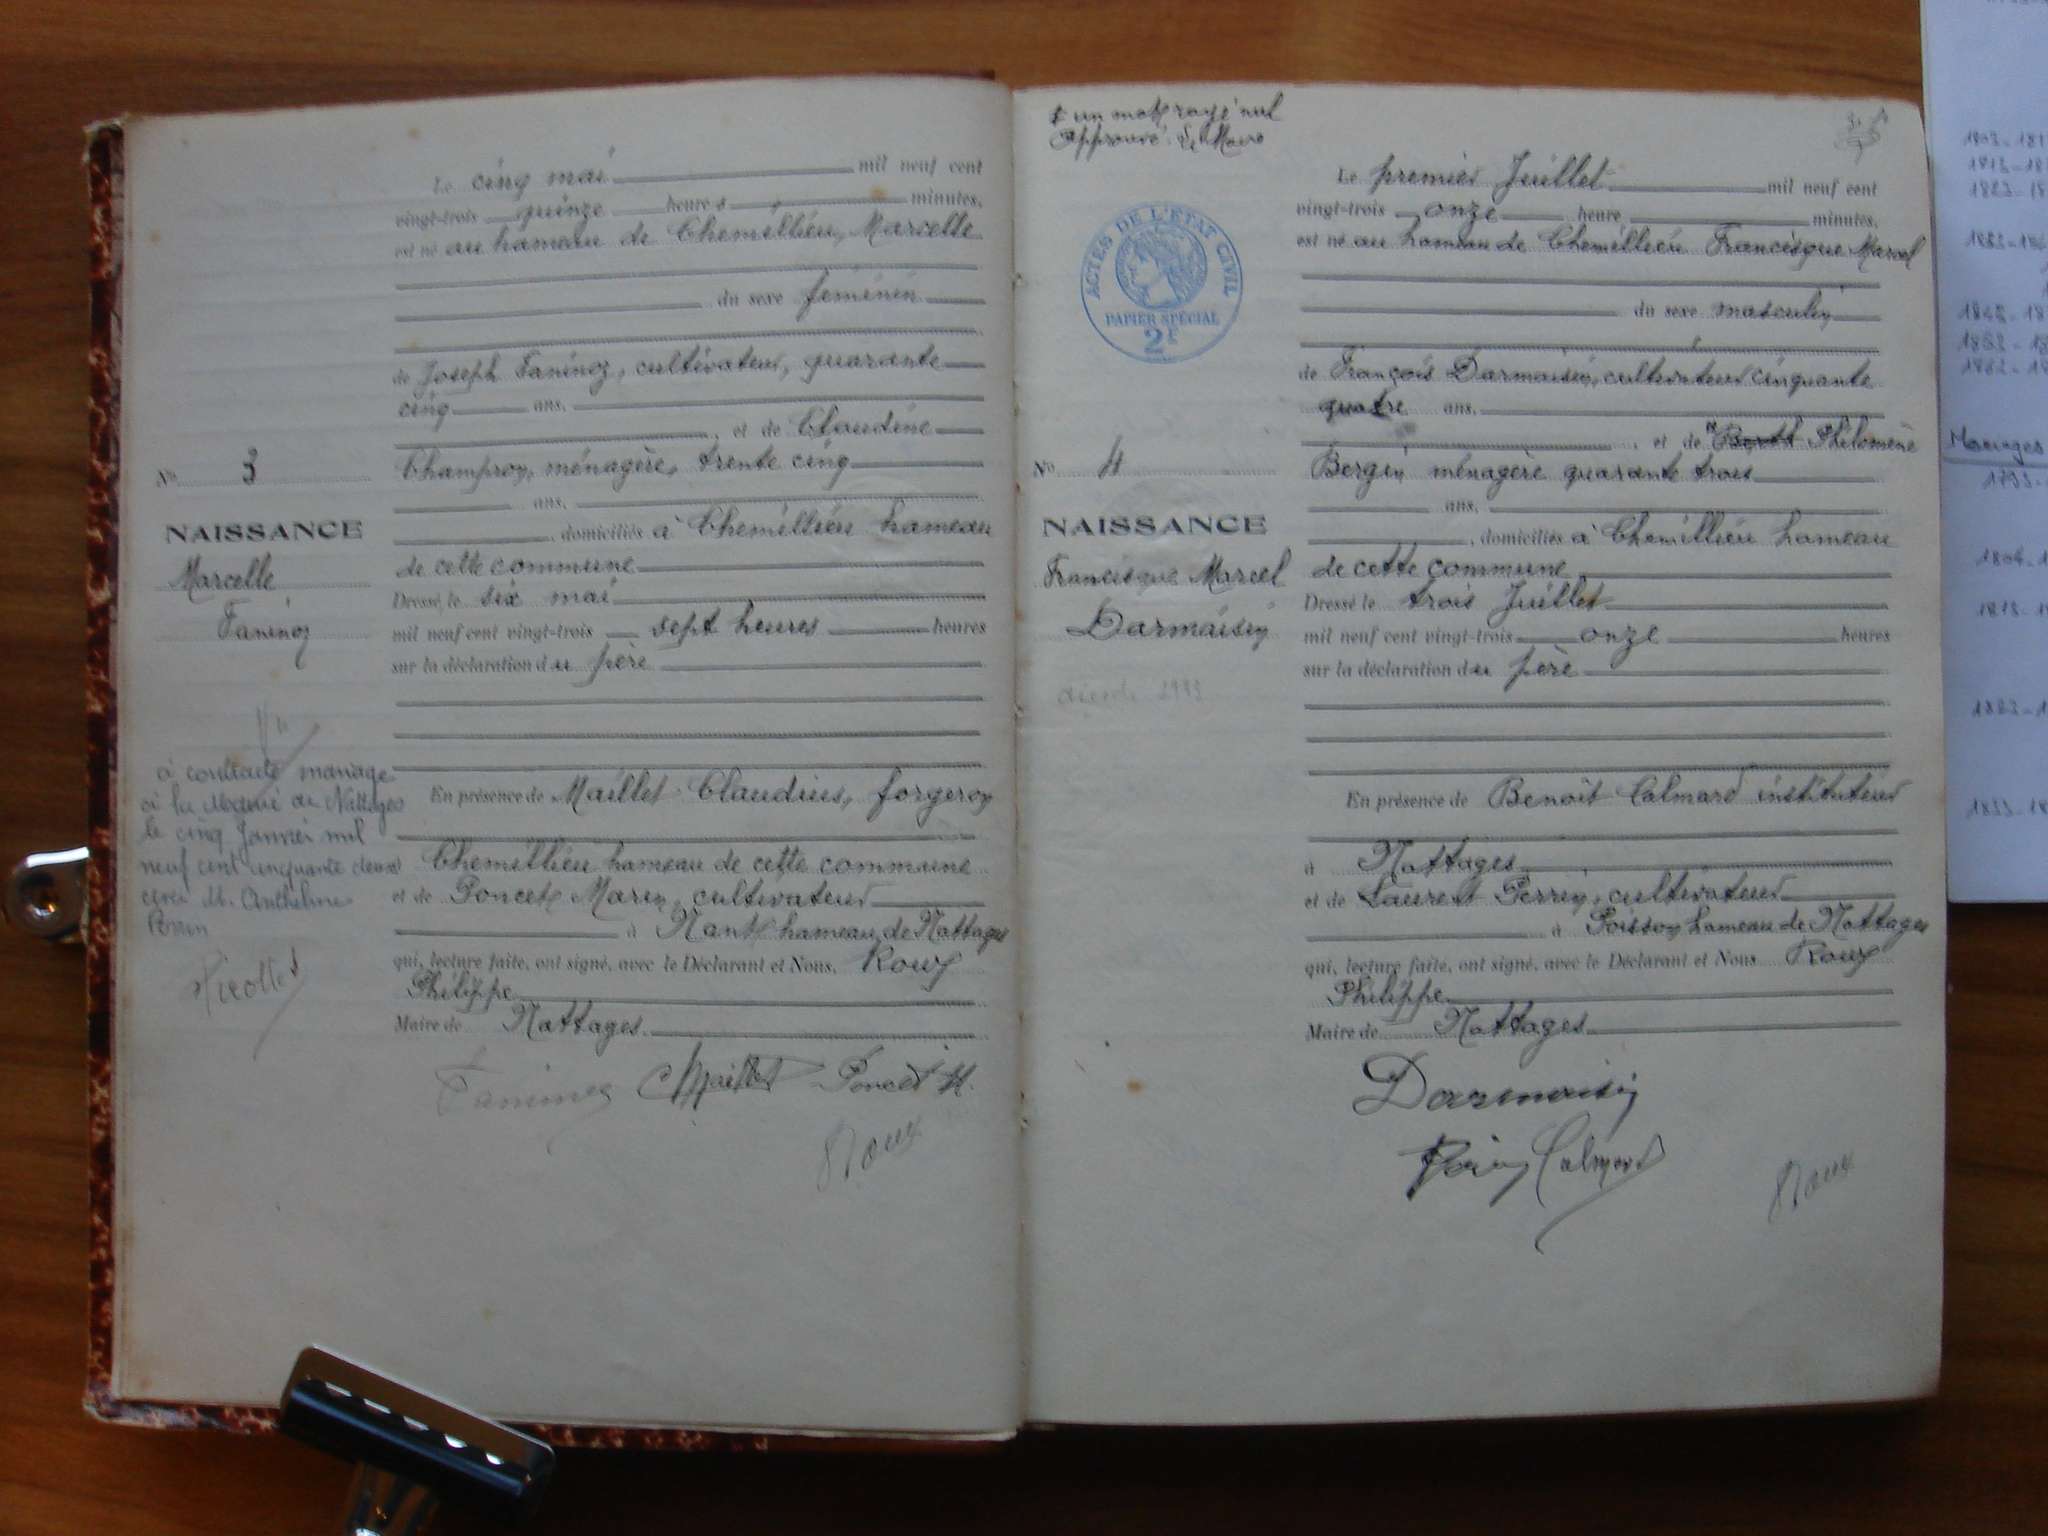 Le cinq mai mil neuf cent
vingt-trois quinze heures minutes,
est né au hameau de Chemillieu, Marcelle
du sexe féminin
de Joseph Faninoz, cultivateur, quarante
cinq ans,
et de Claudine
Champroy, ménagère, trente cinq
ans,
domiciliés à Chemillieu hameau
de cette commune
Dressé, le six mai
mil neuf cent vingt-trois sept heures heures
sur la déclaration du père
En présence de Maillet Claudius, forgeron
Chemillieu hameau de cette commune
et de Poncet Marin, cultivateur
à Nant hameau de Nattages
qui, lecture faite, ont signé, avec le Déclarant et Nous, Roux
Philippe
Maire de Nattages
Maillet Poncet M.
Roux
No 3
NAISSANCE
Marcelle
Faninoz
a contracté mariage
à la Mairie de Nattages
le cinq Janvier mil
neuf cent cinquante deux
avec M. Anthelme
* un mot rayé nul
Approuvé Le Maire
ACTES DE L'ETAT CIVIL
PAPIER SPÉCIAL
2F
Le premier Juillet mil neuf cent
vingt-trois onze heure minutes,
est né au hameau de Chemillieu Francisque Marcel
du sexe masculin
de François Darmaisin, cultivateur cinquante
quatre ans,
et de Philomène
Bergin ménagère quarante trois
ans,
domiciliés à Chemillieu hameau
de cette commune
Dressé le trois Juillet
mil neuf cent vingt-trois onze heures
sur la déclaration du père
En présence de Benoit Calmard instituteur
à Nattages
et de Laurent Perrin, cultivateur
à Poisson hameau de Nattages
qui, lecture faite, ont signé, avec le Déclarant et Nous Roux
Philippe
Maire de Nattages
Darmaisin
Calmard
Roux
No 4
NAISSANCE
Francisque Marcel
Darmaisin
Mariages